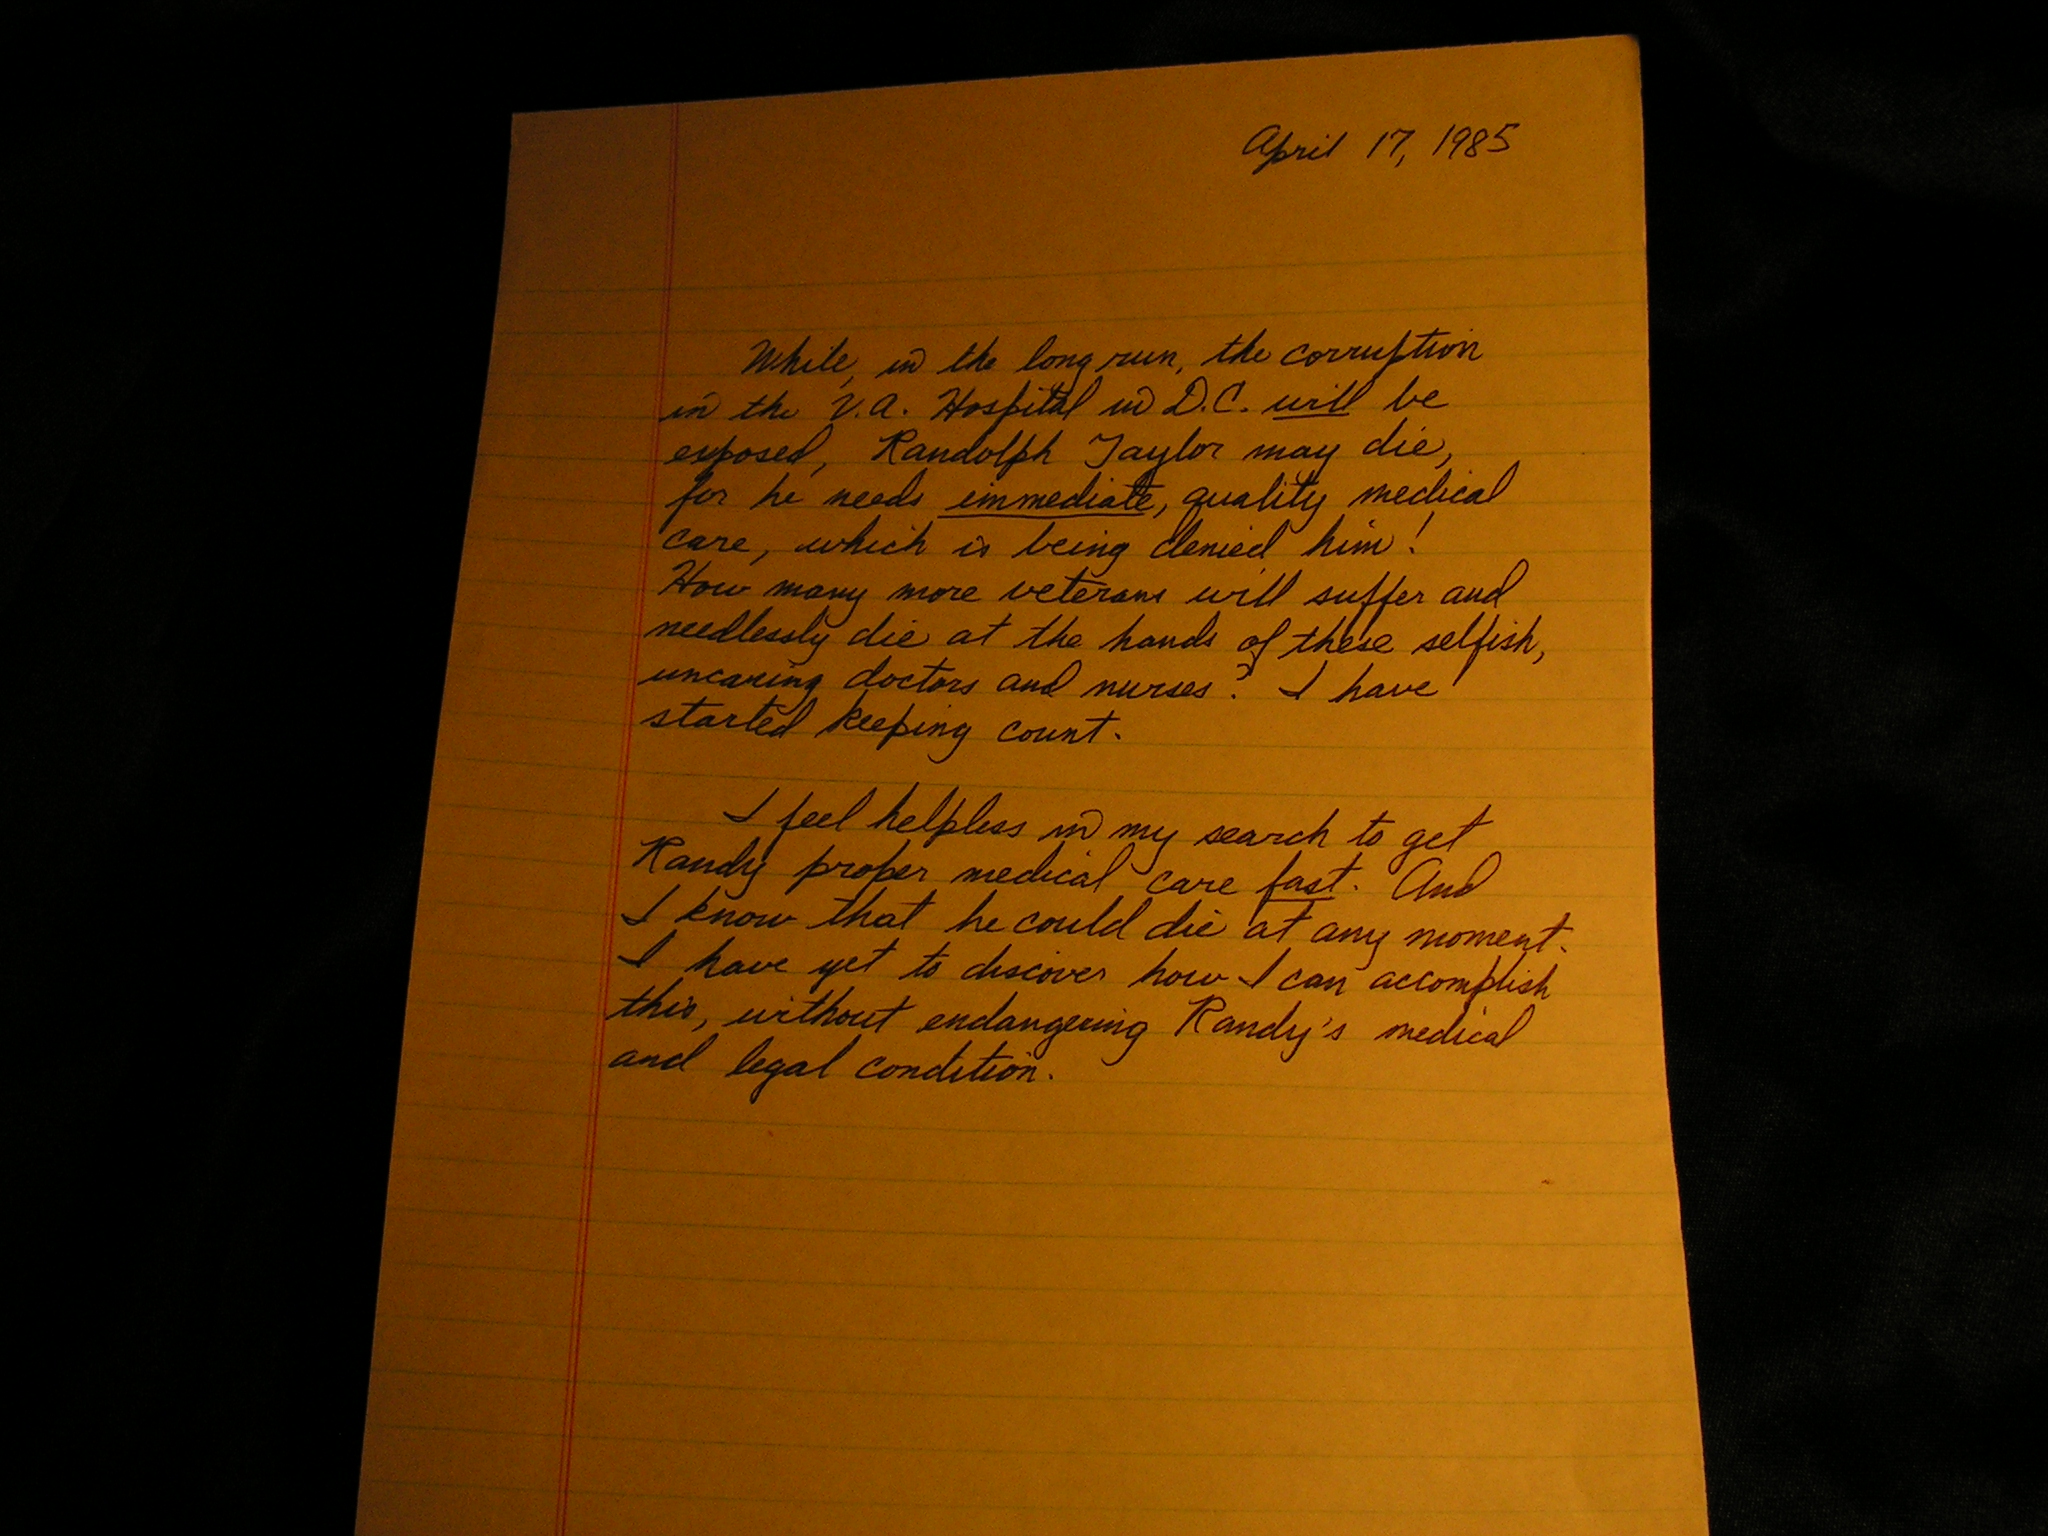 April 17, 1985
While, in the long run, the corruption
in the V.A. Hospital in D.C. will be
exposed, Randolph Taylor may die,
for he needs immediate, quality medical
care, which is being denied him!
How many more veterans will suffer and
needlessly die at the hands of these selfish,
uncaring doctors and nurses? I have
started keeping count.
I feel helpless in my search to get
Randy proper medical care fast. And
I know that he could die at any moment.
I have yet to discover how I can accomplish
this, without endangering Randy's medical
and legal condition.